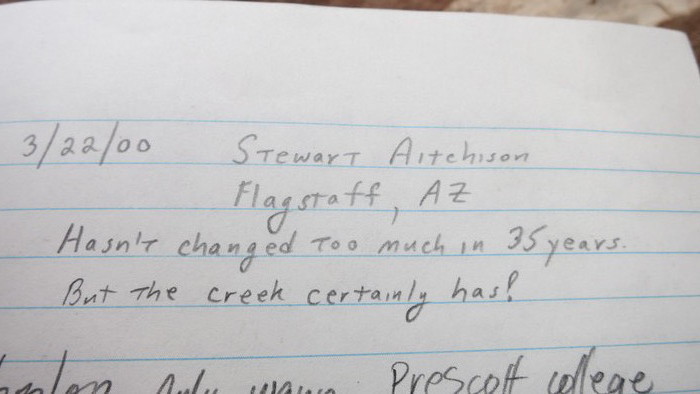 3/22/00 Stewart Aitchison
Flagstaff, AZ
Hasn't changed too much in 35 years.
But the creek certainly has!
Prescott college